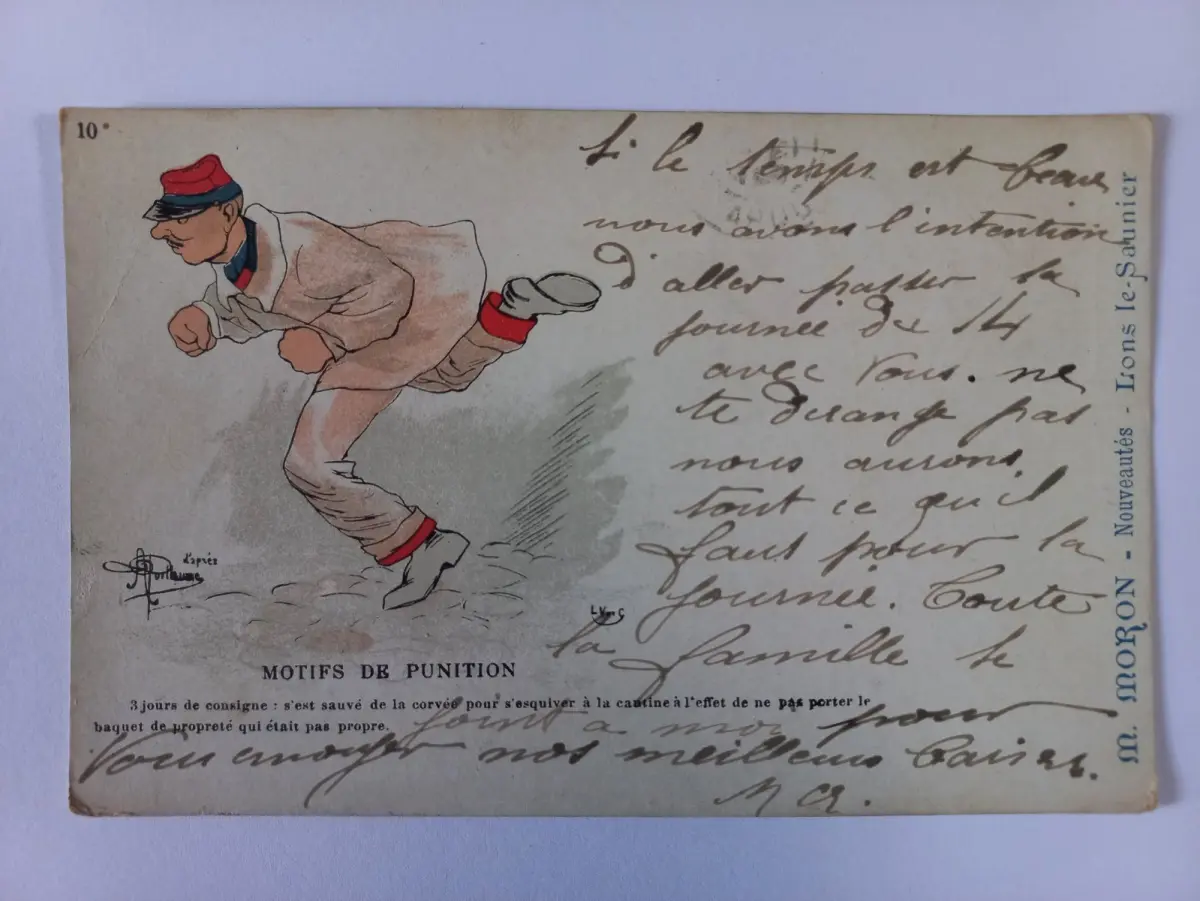 10e
Si le temps est beau
nous avons l'intention
d'aller passer la
journée du 14
avec vous. ne
te derange pas
nous aurons
tout ce qu'il
faut pour la
journée. Toute
la famille se
joint a moi pour
vous envoyer nos meilleurs baisers.
d'après
A Guillaume
MOTIFS DE PUNITION
3 jours de consigne : s'est sauvé de la corvée pour s'esquiver à la cantine à l'effet de ne pas porter le
baquet de propreté qui était pas propre.
M. MORON - Nouveautés - Lons le-Saunier